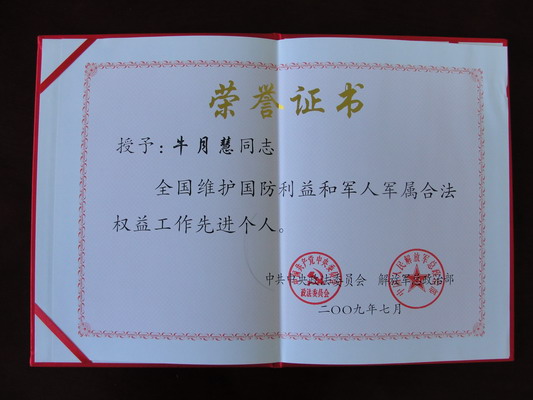 荣誉证书
授予:牛月慧同志
全国维护国防利益和军人军属合法
权益工作先进个人。
中共中央政法委员会 解放军总政治部
二〇〇九年七月
政法委员会